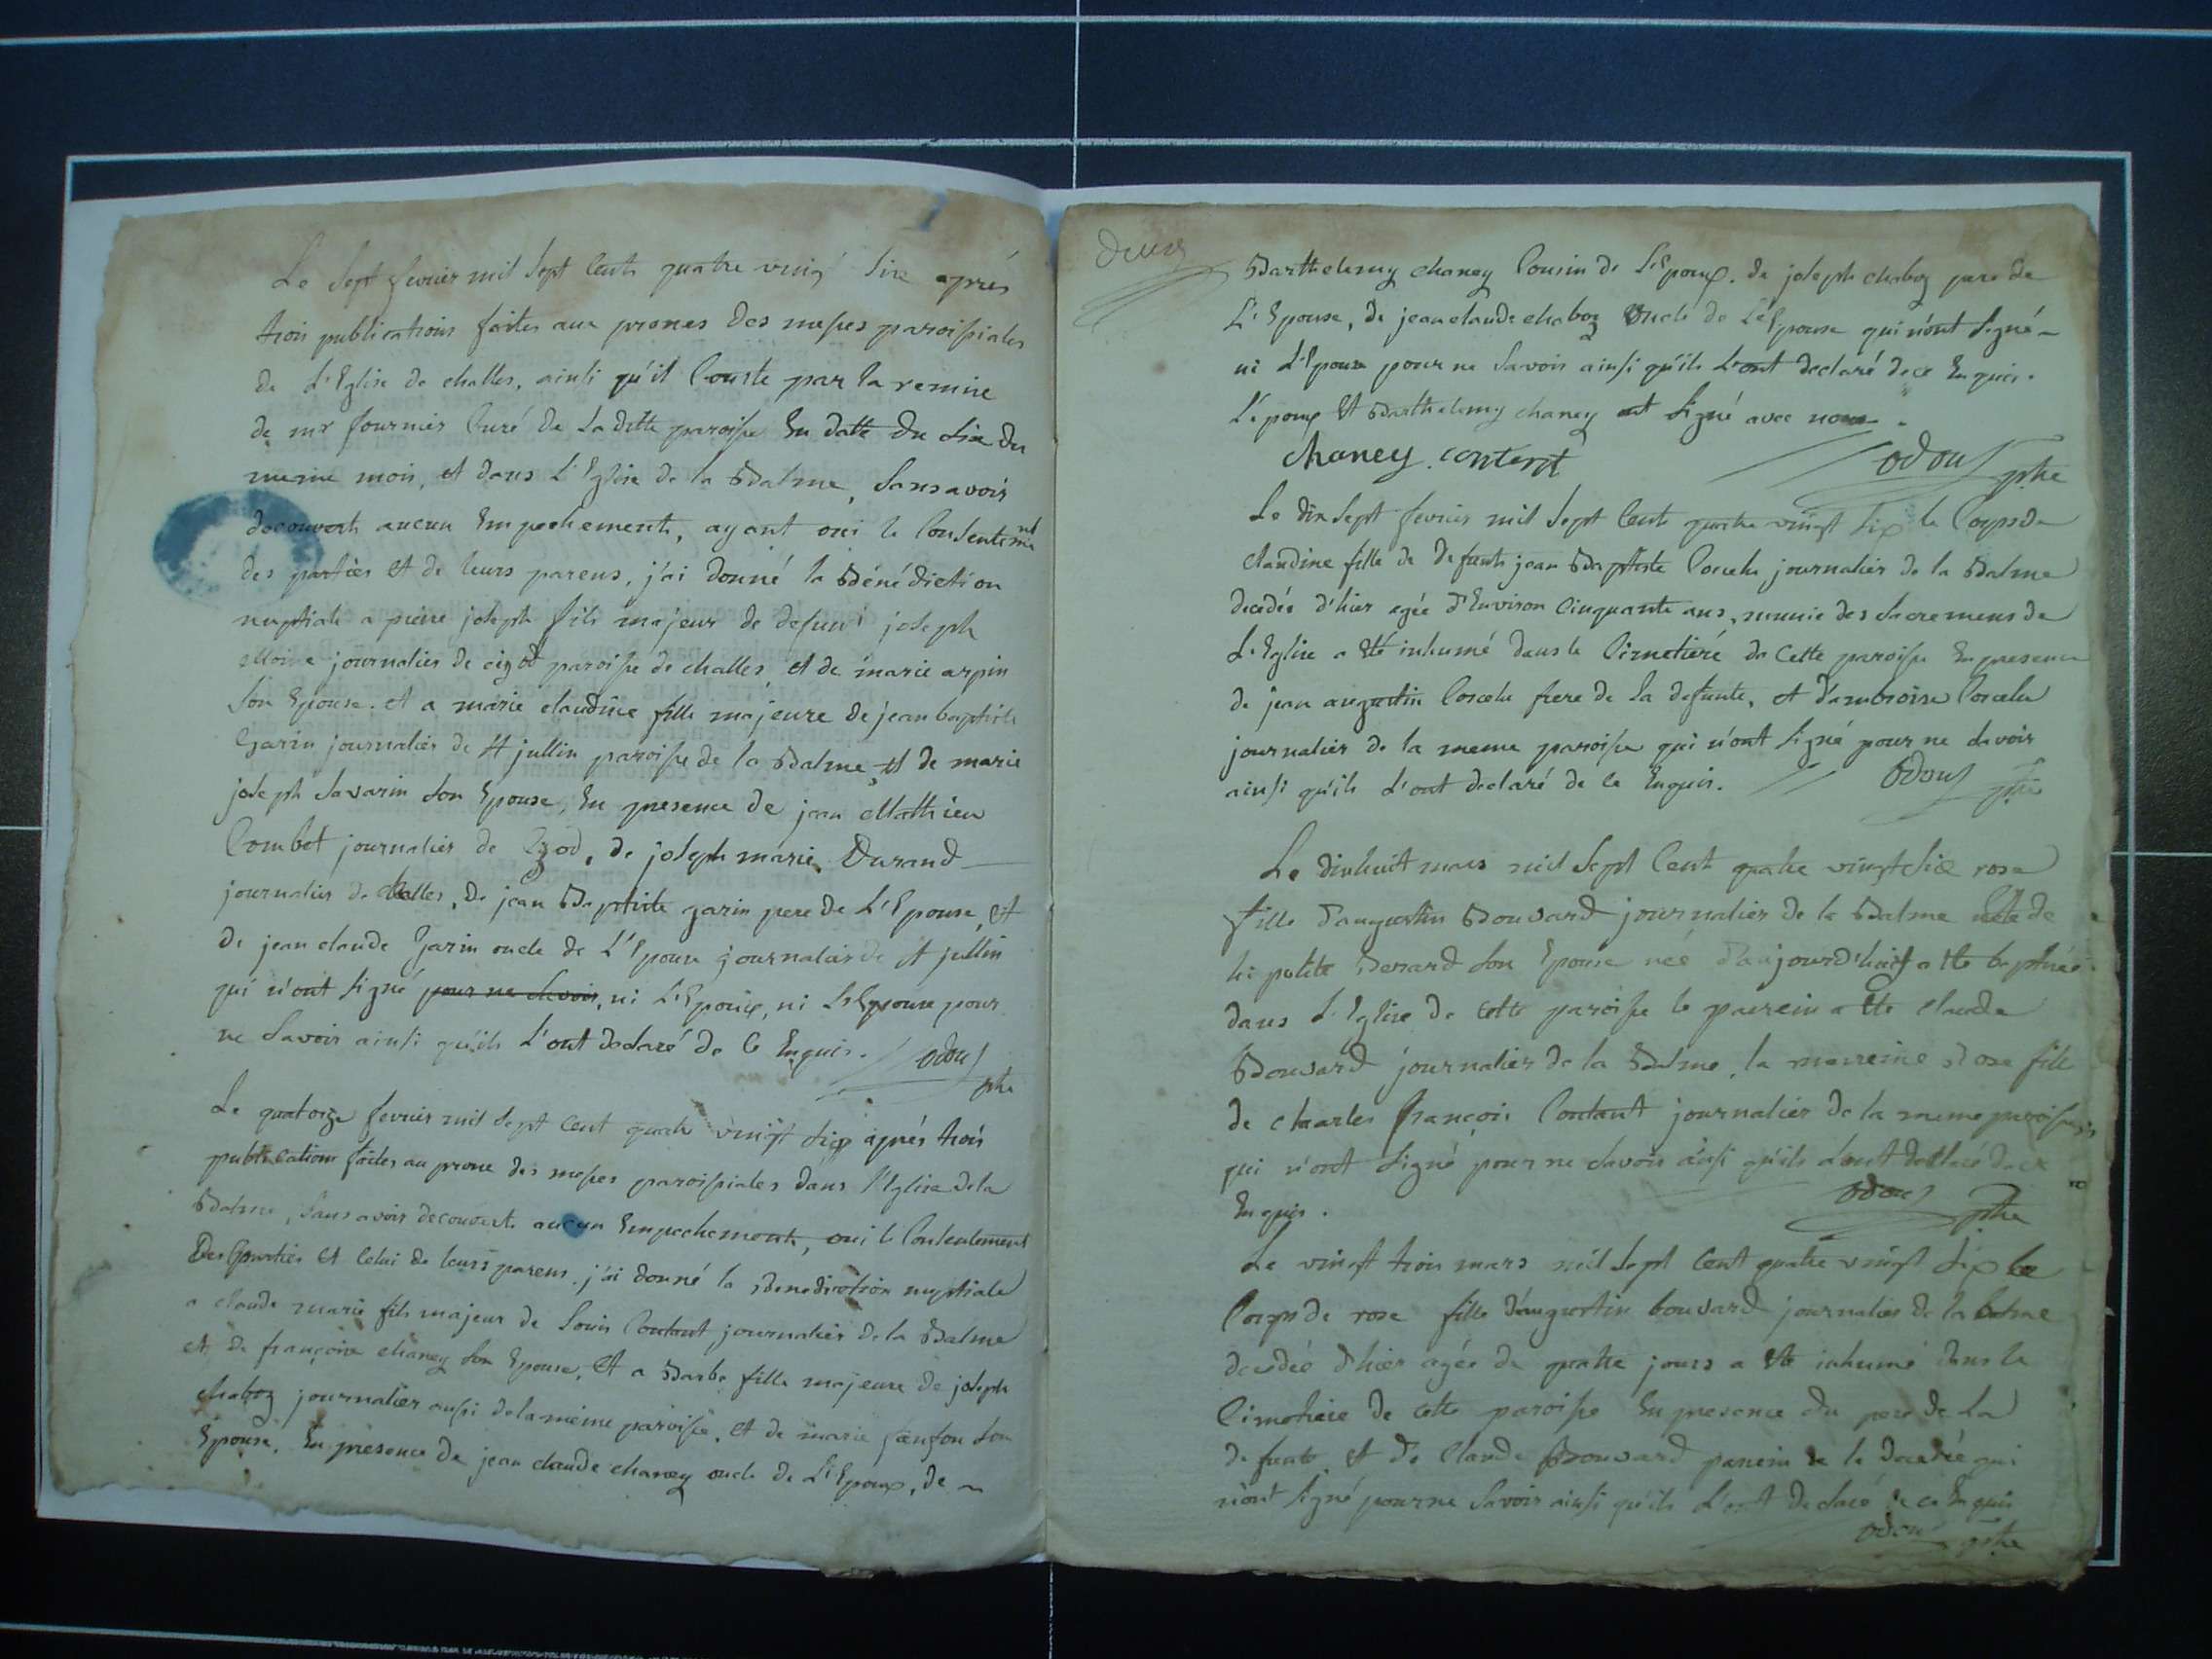 Le sept fevrier mil sept cent quatre vingt six après
trois publications faites aux prones des messes paroissiales
de L'Eglise de challes, ainsi qu'il Conste par la remise
de mr fournier Curé de Laditte paroisse En datte du six du
meme mois, et dans L'Eglise de la Balme, sans avoir
decouvert aucun Empechement, ayant oui le Consentemt
des parties et de leurs parens, j'ai donné la Bénédiction
nuptiale a pierre joseph fils majeur de defunt joseph
journalier de cizod paroisse de challes, et de marie arpin
son Epouse. et a marie claudine fille majeure de jean baptiste
Garin journalier de st jullin paroisse de la Balme, et de marie
joseph Savarin son Epouse, En presence de jean Matthieu
Combet journalier de Cizod, de joseph marie Durand
journalier de challes, de jean Baptiste garin pere de L'Epouse, et
de jean claude Garin oncle de L'Epouse journalier de st jullin
qui n'ont signé pour ne savoir, ni L'Epoux, ni L'Epouse pour
ne savoir ainsi qu'ils L'ont declaré de ce Enquis. odoux
ptre
Le quatorze fevrier mil sept cent quatre vingt six après trois
publications faites au prone des messes paroissiales dans l'Eglise de la
Balme, sans avoir decouvert aucun Empechement, oui le Consentement
Des parties et celui de leurs parens, j'ai donné la Benediction nuptiale
a claude marie fils majeur de Louis Contant journalier de la Balme
et de françoise chaney son Epouse, et a Barbe fille majeure de joseph
chaboz journalier aussi de la même paroisse, et de marie son
Epouse, En presence de jean claude chaney oncle de L'Epoux, de
deux
Barthelemy chaney Cousin de L'Epoux, de joseph chaboz pere de
L'Epouse, de jean claude chaboz oncle de L'Epouse qui n'ont signé
ni L'Epouse pour ne savoir ainsi qu'ils L'ont declaré de ce Enquis.
L'époux et Barthelemy chaney ont signé avec nous.
chaney contant odoux ptre
Le dix sept fevrier mil sept cent quatre vingt six le Corps de
claudine fille de defunt jean Baptiste Corcelu journalier de la Balme
decedée d'hier agée d'Environ Cinquante ans, munie des sacremens de
L'Eglise a eté inhumé dans le Cimetiere de Cette paroisse En presence
de jean augustin Corcelu frere de la defunte, et d'ambroise Corcelu
journalier de la meme paroisse qui n'ont signé pour ne savoir
ainsi qu'ils L'ont declaré de ce Enquis. odoux ptre
Le dixhuit mars mil sept Cent quatre vingt six rose
fille d'augustin Bouvard journalier de la Balme et de
hipolite Berard son Epouse née d'aujourd'huy a eté baptisée
dans L'Eglise de cette paroisse le parrein a eté claude
Bouvard journalier de la Balme, la marreine Rose fille
de charles françois Contant journalier de la meme paroisse
qui n'ont signé pour ne savoir ainsi qu'ils L'ont declaré de ce
Enquis. odoux ptre
Le vingt trois mars mil sept Cent quatre vingt six le
Corps de rose fille d'augustin bouvard journalier de la balme
decedée d'hier agée de quatre jours a eté inhumé dans le
Cimetiere de cette paroisse En presence du pere de La
defunte et de Claude Bouvard parrein de la decedée qui
n'ont signé pour ne savoir ainsi qu'ils L'ont declaré de ce Enquis
odoux ptre